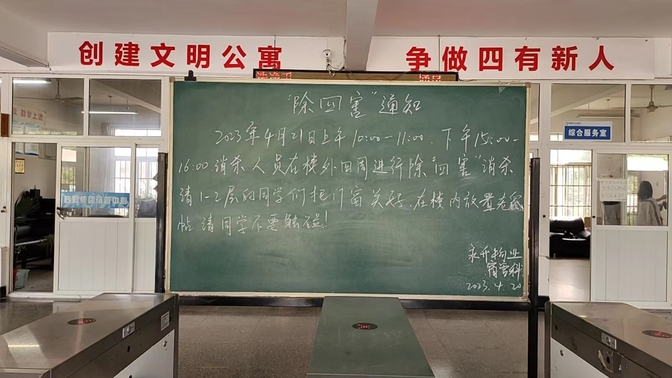 创建文明公寓
争做四有新人
综合服务室
"除四害"通知
2023年4月21日上午10:00-11:00.下午15:00-
16:00消杀人员在楼外四周进行除"四害"消杀
请1-2层的同学们把门窗关好.在楼内放置老鼠
帖请同学不要触碰!
物业
宿管科
2023.4.20